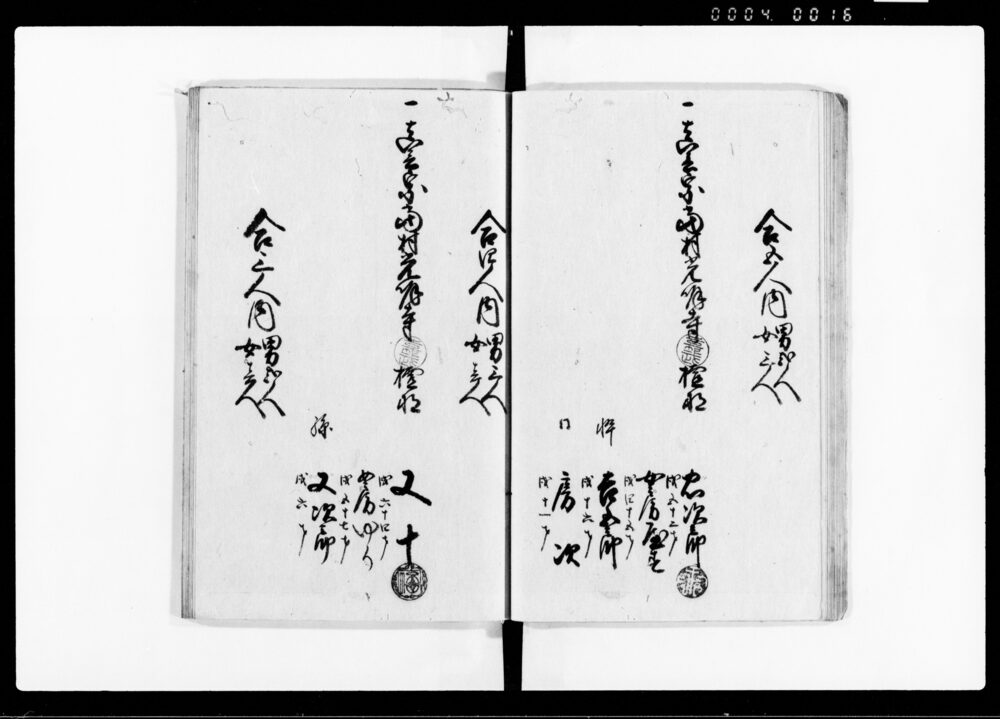 0004 0016
合五人内
男弐人
女三人
一真言宗当村光寺檀那
忠次郎
戌五十三才
女房
戌四十五才
倅 吉五郎
戌十六才
同 房次
戌十一才
合四人内
男三人
女壱人
一真言宗当村光寺檀那
又十
戌六十四才
女房
戌五十七才
孫 又次郎
戌六才
合三人内
男弐人
女壱人